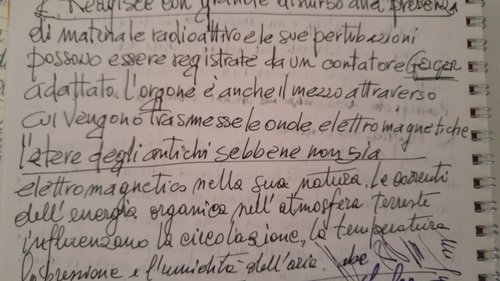 2. Reagisce con grande disturbo alla presenza
di materiale radioattivo e le sue pertubazioni
possono essere registrate da un contatore GEIGER
adattato. l'orgone è anche il mezzo attraverso
cui vengono trasmesse le onde elettromagnetiche
l'etere degli antichi sebbene non sia
elettromagnetico nella sua natura. Le correnti
dell'energia organica nell'atmosfera terrestre
influenzano la circolazione, la temperatura
la pressione e l'umidità dell'aria.